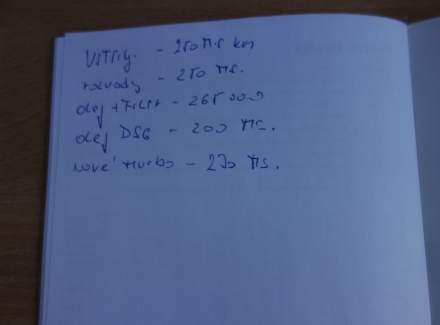 vstřiky - 250 tis km
rozvody - 250 tis.
olej + filtr - 265 000
olej DSG - 200 tis.
nové turbo - 270 tis.